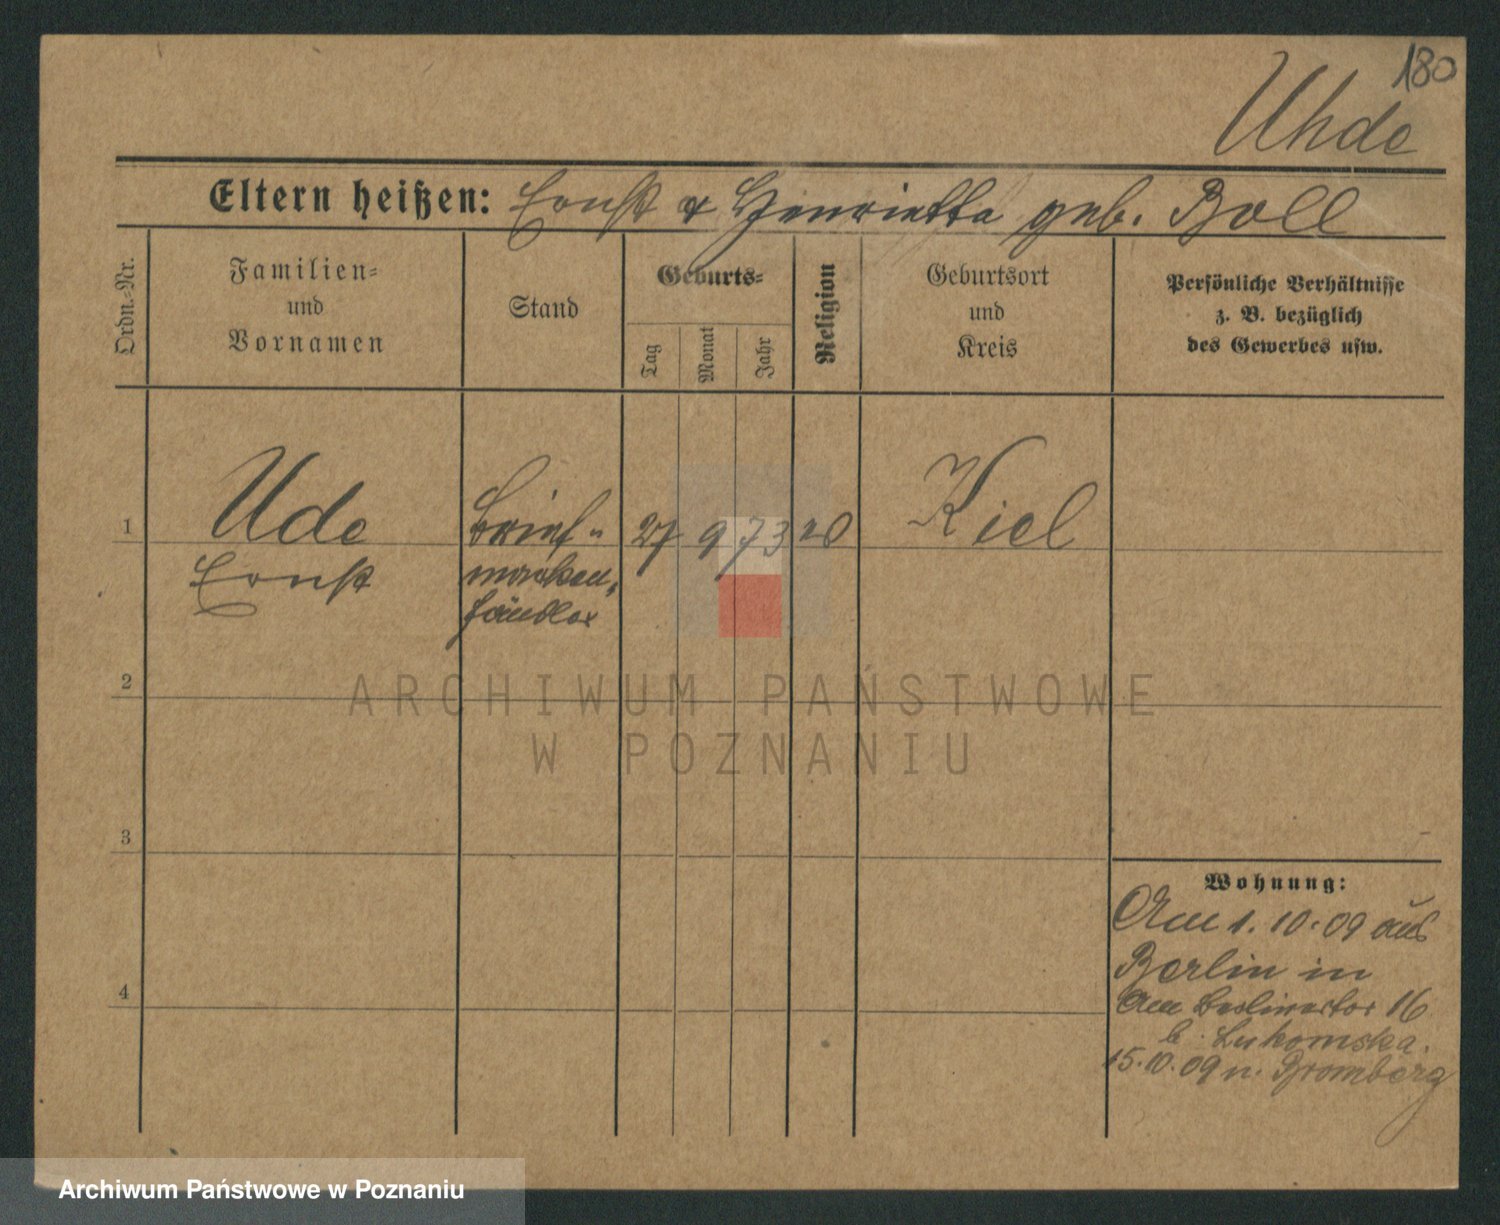 180
Uhde
Eltern heißen: Ernst & Henrietta geb. Boll
Ordn.-Nr.
Familien=
und
Vornamen
Stand
Geburts=
Tag
Monat
Jahr
Religion
Geburtsort
und
Kreis
Persönliche Verhältnisse
z. B. bezüglich
des Gewerbes usw.
1
Ude
Ernst
Brief-
marken
händler
27
9
73
Kiel
2
3
4
Wohnung:
Am 1.10.09 aus
Berlin in
Am Berlinertor 16
b. Lukomska.
15.10.09 n. Bromberg
ARCHIWUM PAŃSTWOWE
W POZNANIU
Archiwum Państwowe w Poznaniu